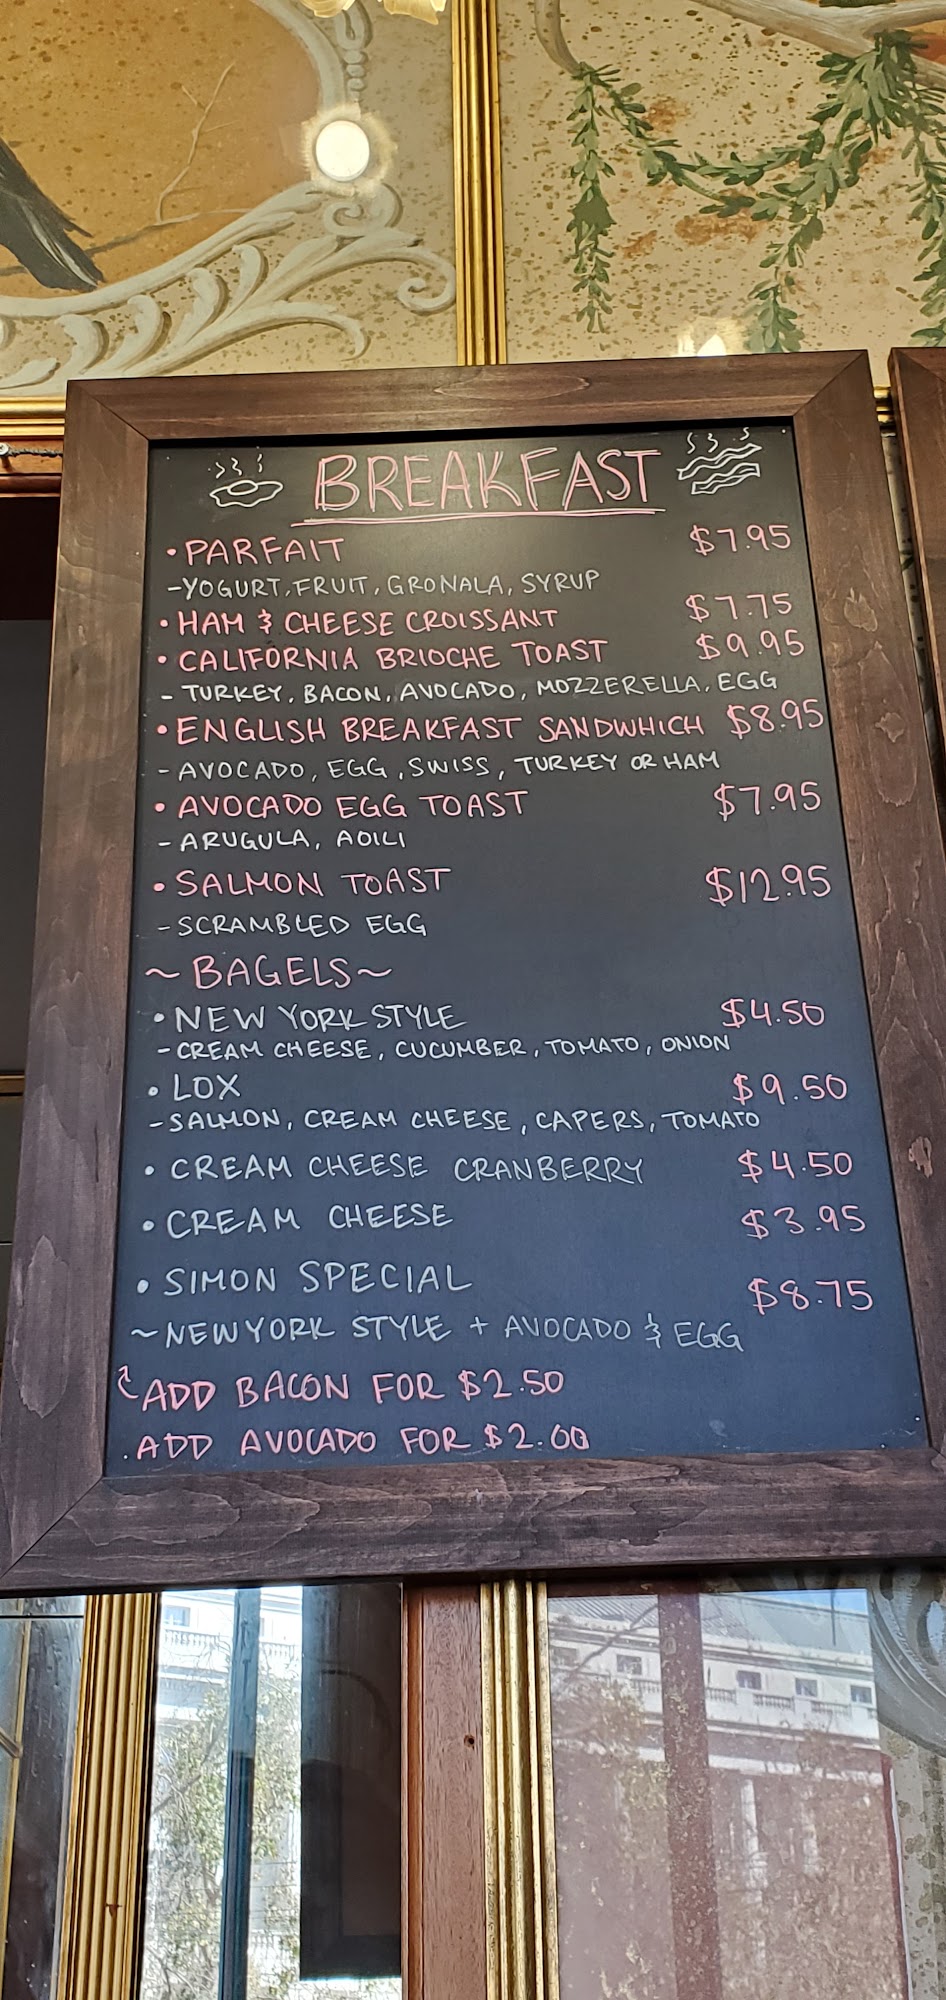 BREAKFAST
• PARFAIT $7.95
-YOGURT, FRUIT, GRONALA, SYRUP
• HAM & CHEESE CROISSANT $7.75
• CALIFORNIA BRIOCHE TOAST $9.95
- TURKEY, BACON, AVOCADO, MOZZERELLA, EGG
• ENGLISH BREAKFAST SANDWHICH $8.95
- AVOCADO, EGG, SWISS, TURKEY OR HAM
• AVOCADO EGG TOAST $7.95
- ARUGULA, AOILI
• SALMON TOAST $12.95
- SCRAMBLED EGG
~ BAGELS ~
• NEW YORK STYLE $4.50
- CREAM CHEESE, CUCUMBER, TOMATO, ONION
• LOX $9.50
- SALMON, CREAM CHEESE, CAPERS, TOMATO
• CREAM CHEESE CRANBERRY $4.50
• CREAM CHEESE $3.95
• SIMON SPECIAL $8.75
~ NEW YORK STYLE + AVOCADO & EGG
ADD BACON FOR $2.50
. ADD AVOCADO FOR $2.00